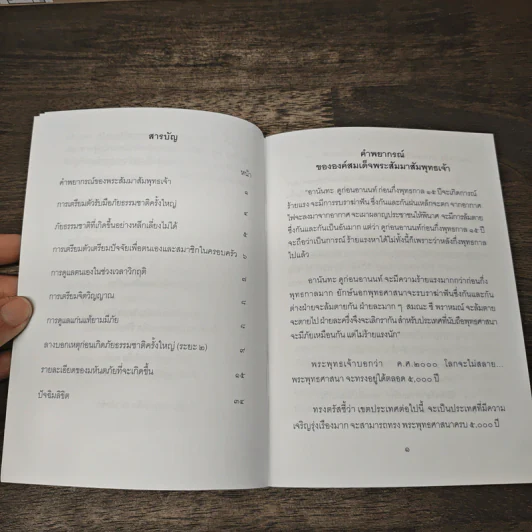 สารบัญ
หน้า
คำพยากรณ์ของพระสัมมาสัมพุทธเจ้า ๑
การเตรียมตัวรับมือภัยธรรมชาติครั้งใหญ่ ๔
ภัยธรรมชาติที่เกิดขึ้นอย่างหลีกเลี่ยงไม่ได้ ๕
การเตรียมตัวเตรียมปัจจัยเพื่อตนเองและสมาชิกในครอบครัว ๖
การดูแลตนเองในช่วงเวลาวิกฤติ ๘
การเตรียมจิตวิญญาณ ๘
การดูแลแก่นแท้ยามมีภัย ๘
ลางบอกเหตุก่อนเกิดภัยธรรมชาติครั้งใหญ่ (ระยะ ๒) ๙
รายละเอียดของมหันตภัยที่จะเกิดขึ้น ๑๕
ปัจฉิมลิขิต ๓๔
คำพยากรณ์
ขององค์สมเด็จพระสัมมาสัมพุทธเจ้า
"อานันทะ ดูก่อนอานนท์ ก่อนกึ่งพุทธกาล ๑๕ ปีจะเกิดการณ์
ร้ายแรง จะมีการรบราฆ่าฟัน ซึ่งกันและกันฝนเหล็กจะตก จากอากาศ
ไฟจะลงมาจากอากาศ จะเผาผลาญประชาชนให้พินาศ จะมีการล้มตาย
ซึ่งกันและกันเป็นอันมาก แต่ว่า ดูก่อนอานนท์ก่อนกึ่งพุทธกาล ๑๕ ปี
จะถือว่าเป็นการณ์ ร้ายแรงหาได้ไม่ทั้งนี้ก็เพราะว่าหลังกึ่งพุทธกาล
ไปแล้ว
อานันทะ ดูก่อนอานนท์ จะมีความร้ายแรงมากกว่าก่อนกึ่ง
พุทธกาลมาก ยักษ์นอกพุทธศาสนาจะรบราฆ่าฟันซึ่งกันและกัน
ต่างฝ่ายจะล้มตายกัน ฝ่ายละมาก ๆ สมณะ ชี พราหมณ์ จะล้มตาย
จะตายไป ฝ่ายละครึ่งจึงจะเลิกรากัน สำหรับประเทศที่นับถือพุทธศาสนา
จะมีภัยเหมือนกัน แต่ไม่ร้ายแรงนัก"
พระพุทธเจ้าบอกว่า ค.ศ.๒๐๐๐ โลกจะไม่สลาย...
พระพุทธศาสนา จะทรงอยู่ได้ตลอด ๕,๐๐๐ ปี
ทรงตรัสชี้ว่า เขตประเทศต่อไปนี้ จะเป็นประเทศที่มีความ
เจริญรุ่งเรืองมาก จะสามารถทรง พระพุทธศาสนาครบ ๕,๐๐๐ ปี
๑